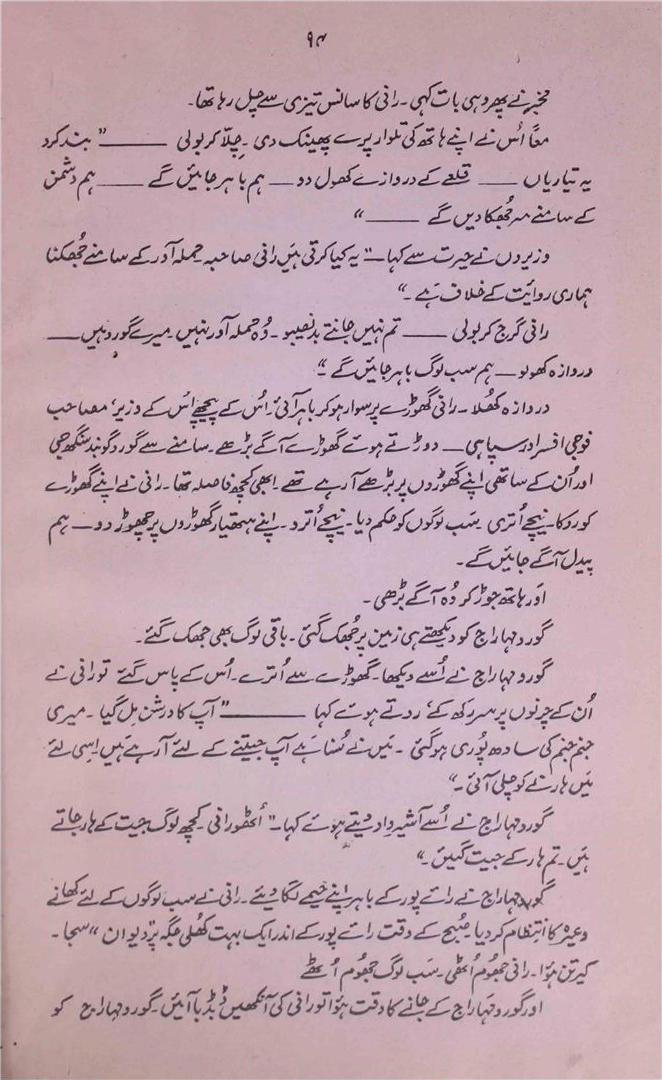 ۹۴
مخبر نے پھر وہی بات کہی۔ رانی کا سانس تیزی سے چل رہا تھا۔
معاً اُس نے اپنے ہاتھ کی تلوار پرے پھینک دی۔ چِلّا کر بولی ——— "بند کرد
یہ تیاریاں —— قلعے کے دروازے کھول دو — ہم باہر جائیں گے —— ہم دشمن
کے سامنے سر جُھکا دیں گے ——"
وزیروں نے حیرت سے کہا — "یہ کیا کرتی ہیں رانی صاحبہ۔ حملہ آور کے سامنے جُھکنا
ہماری روایت کے خلاف ہے۔"
رانی گرج کر بولی —— تم نہیں جانتے بدنصیبو۔ وُہ حملہ آور نہیں۔ میرے گورو ہیں ——
دروازہ کھولو — ہم سب لوگ باہر جائیں گے۔"
دروازہ کُھلا۔ رانی گھوڑے پر سوار ہو کر باہر آئی۔ اُس کے پیچھے اس کے وزیر، مصاحب
فوجی افسر اور سپاہی — دوڑتے ہوئے گھوڑے آگے بڑھے۔ سامنے سے گورو گوبند سنگھ جی
اور اُن کے ساتھی اپنے گھوڑوں پر بڑھے آ رہے تھے۔ ابھی کچھ فاصلہ تھا۔ رانی نے اپنے گھوڑے
کو روکا۔ نیچے اُتری۔ سَب لوگوں کو حکم دیا۔ نیچے اُترو۔ اپنے ہتھیار گھوڑوں پر چھوڑ دو — ہم
پیدل آگے جائیں گے۔
اور ہاتھ جوڑ کر وُہ آگے بڑھی۔
گورو مہاراج کو دیکھتے ہی زمین پر جُھک گئی۔ باقی لوگ بھی جھک گئے۔
گورو مہاراج نے اُسے دیکھا۔ گھوڑے سے اُترے۔ اُس کے پاس گئے تو رانی نے
اُن کے چرنوں پر سر رکھ کے، روتے ہوئے کہا ——— "آپ کا درشن مِل گیا۔ میری
جنم جنم کی سادھ پُوری ہو گئی۔ میَں نے سُنا ہے آپ جیتنے کے لئے آ رہے ہیں اِسی لئے
میَں ہارنے کو چلی آئی۔"
گورو مہاراج نے اُسے آشیرواد دیتے ہوئے کہا۔ "اُٹھو رانی۔ کچھ لوگ جیت کے ہار جاتے
ہیں۔ تم ہار کے جیت گئیں۔"
گورو مہاراج نے رائے پور کے باہر اپنے خیمے لگا دیئے۔ رانی نے سب لوگوں کے لئے کھانے
وغیرہ کا انتظام کر دیا۔ صُبح کے وقت رائے پور کے اندر ایک بہت کُھلی جگہ پر "دیوان" سجا۔
کیرتن ہُوا۔ رانی جُھوم اُٹھی۔ سَب لوگ جُھوم اُٹھے
اور گورو مہاراج کے جانے کا وقت ہُوا تو رانی کی آنکھیں ڈبڈبا آئیں۔ گورو مہاراج کو